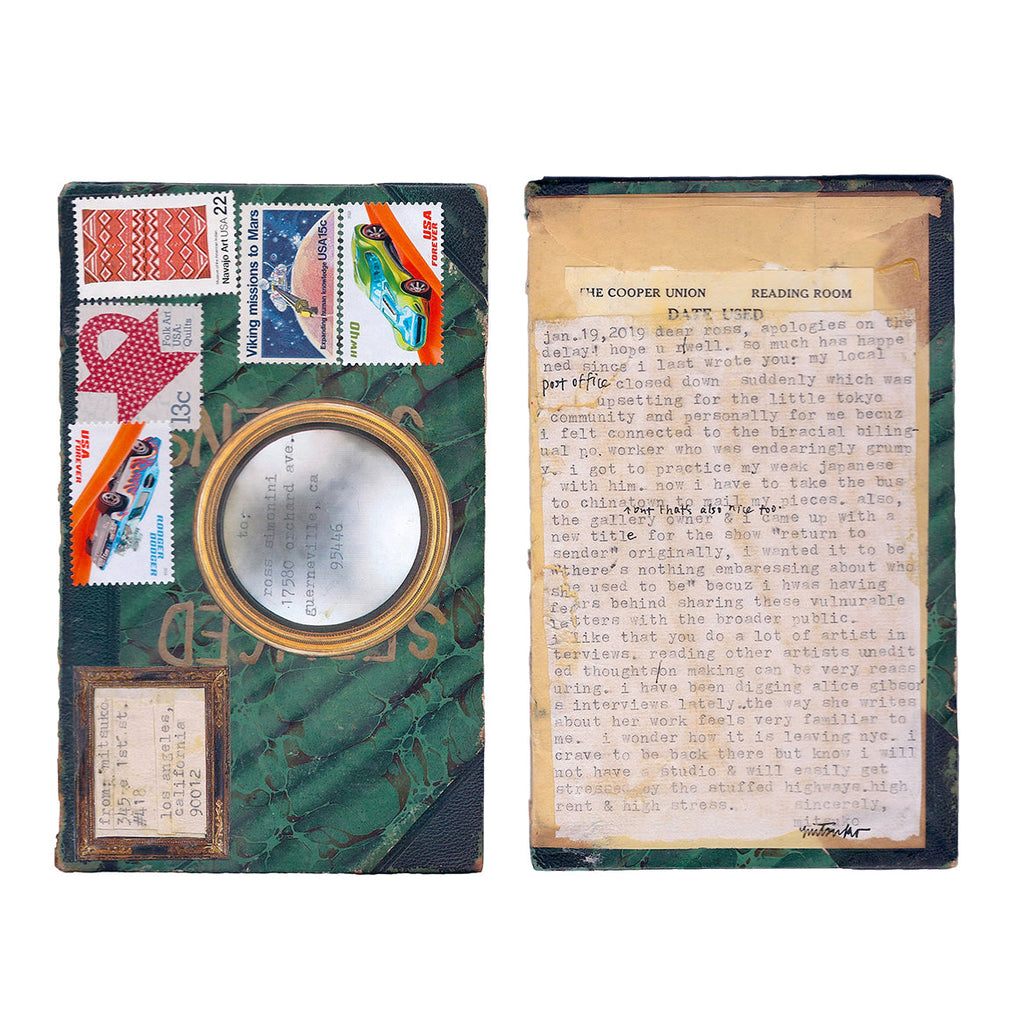 22
Navajo Art USA
Viking missions to Mars
Expanding human knowledge USA 15c
USA
FOREVER
HW40
Folk Art
USA:
Quilts
13c
USA
FOREVER
RODGER
DODGER
to:
ross simonini
17580 orchard ave.
guerneville, ca
95446
from: mitsuko
345 e 1st st.
#418
los angeles,
california
90012
THE COOPER UNION READING ROOM
DATE USED
jan.19,2019 dear ross, apologies on the
delay! hope u r well. so much has happe
ned since i last wrote you: my local
post office closed down suddenly which was
upsetting for the little tokyo
community and personally for me becuz
i felt connected to the biracial biling-
ual po. worker who was endearingly grump
y. i got to practice my weak japanese
with him. now i have to take the bus
to chinatown to mail my pieces. also,
but thats also nice too.
the gallery owner & i came up with a
new title for the show "return to
sender" originally, i wanted it to be
"there's nothing embaressing about who
she used to be" becuz i hwas having
fears behind sharing these vulnurable
letters with the broader public.
i like that you do a lot of artist in
terviews. reading other artists unedit
ed thoughts on making can be very reass
uring. i have been digging alice gibson
s interviews lately..the way she writes
about her work feels very familiar to
me. i wonder how it is leaving nyc. i
crave to be back there but know i will
not have a studio & will easily get
stressed by the stuffed highways.high
rent & high stress. sincerely,
mitsuko
mitsuko